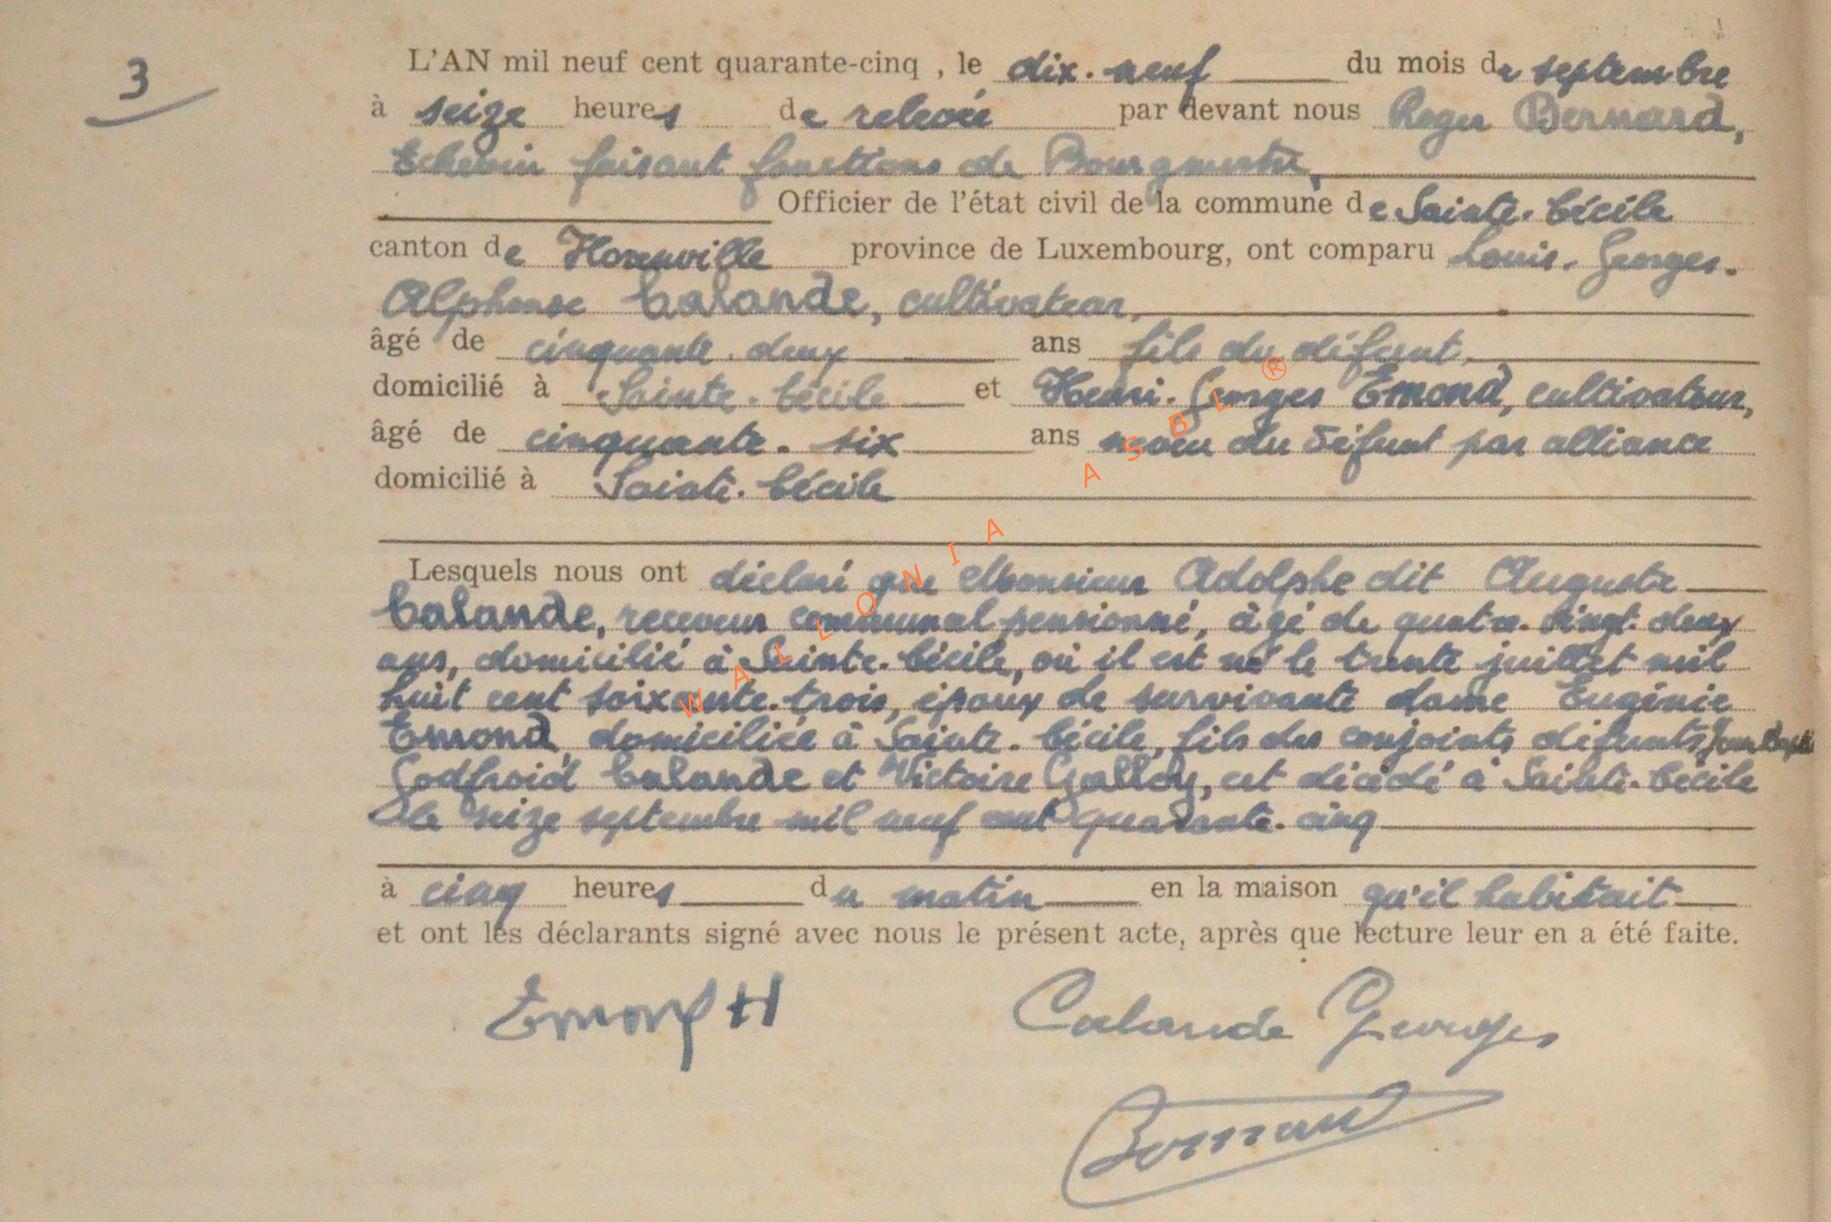 3
L'AN mil neuf cent quarante-cinq , le dix-neuf du mois de septembre
à seize heures de relevée par devant nous Roger Bernard,
Echevin faisant fonctions de Bourgmestre,
Officier de l'état civil de la commune de Sainte-Cécile
canton de Florenville province de Luxembourg, ont comparu Louis-Georges-
Alphonse Calande, cultivateur,
âgé de cinquante-deux ans fils du défunt,
domicilié à Sainte-Cécile et Henri-Georges Emond, cultivateur,
âgé de cinquante-six ans neveu du défunt par alliance
domicilié à Sainte-Cécile
Lesquels nous ont déclaré que Monsieur Adolphe dit Auguste
Calande, receveur communal pensionné, âgé de quatre-vingt-deux
ans, domicilié à Sainte-Cécile, où il est né le trente juillet mil
huit cent soixante-trois, époux de survivante dame Eugénie
Emond, domiciliée à Sainte-Cécile, fils des conjoints défunts Jean Bapt
Godfroid Calande et Victoire Galloy, est décédé à Sainte-Cécile
le seize septembre mil neuf cent quarante-cinq
à cinq heures du matin en la maison qu'il habitait
et ont les déclarants signé avec nous le présent acte, après que lecture leur en a été faite.
Emond H Calande Georges
Bernard
WALLONIA ASBL ®